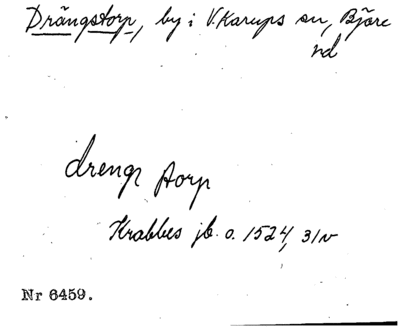 Drängstorp, by i V. Karups sn, Bjäre
hd
drengs torp
Krabbes jb. o. 1524, 31v
Nr 6459.